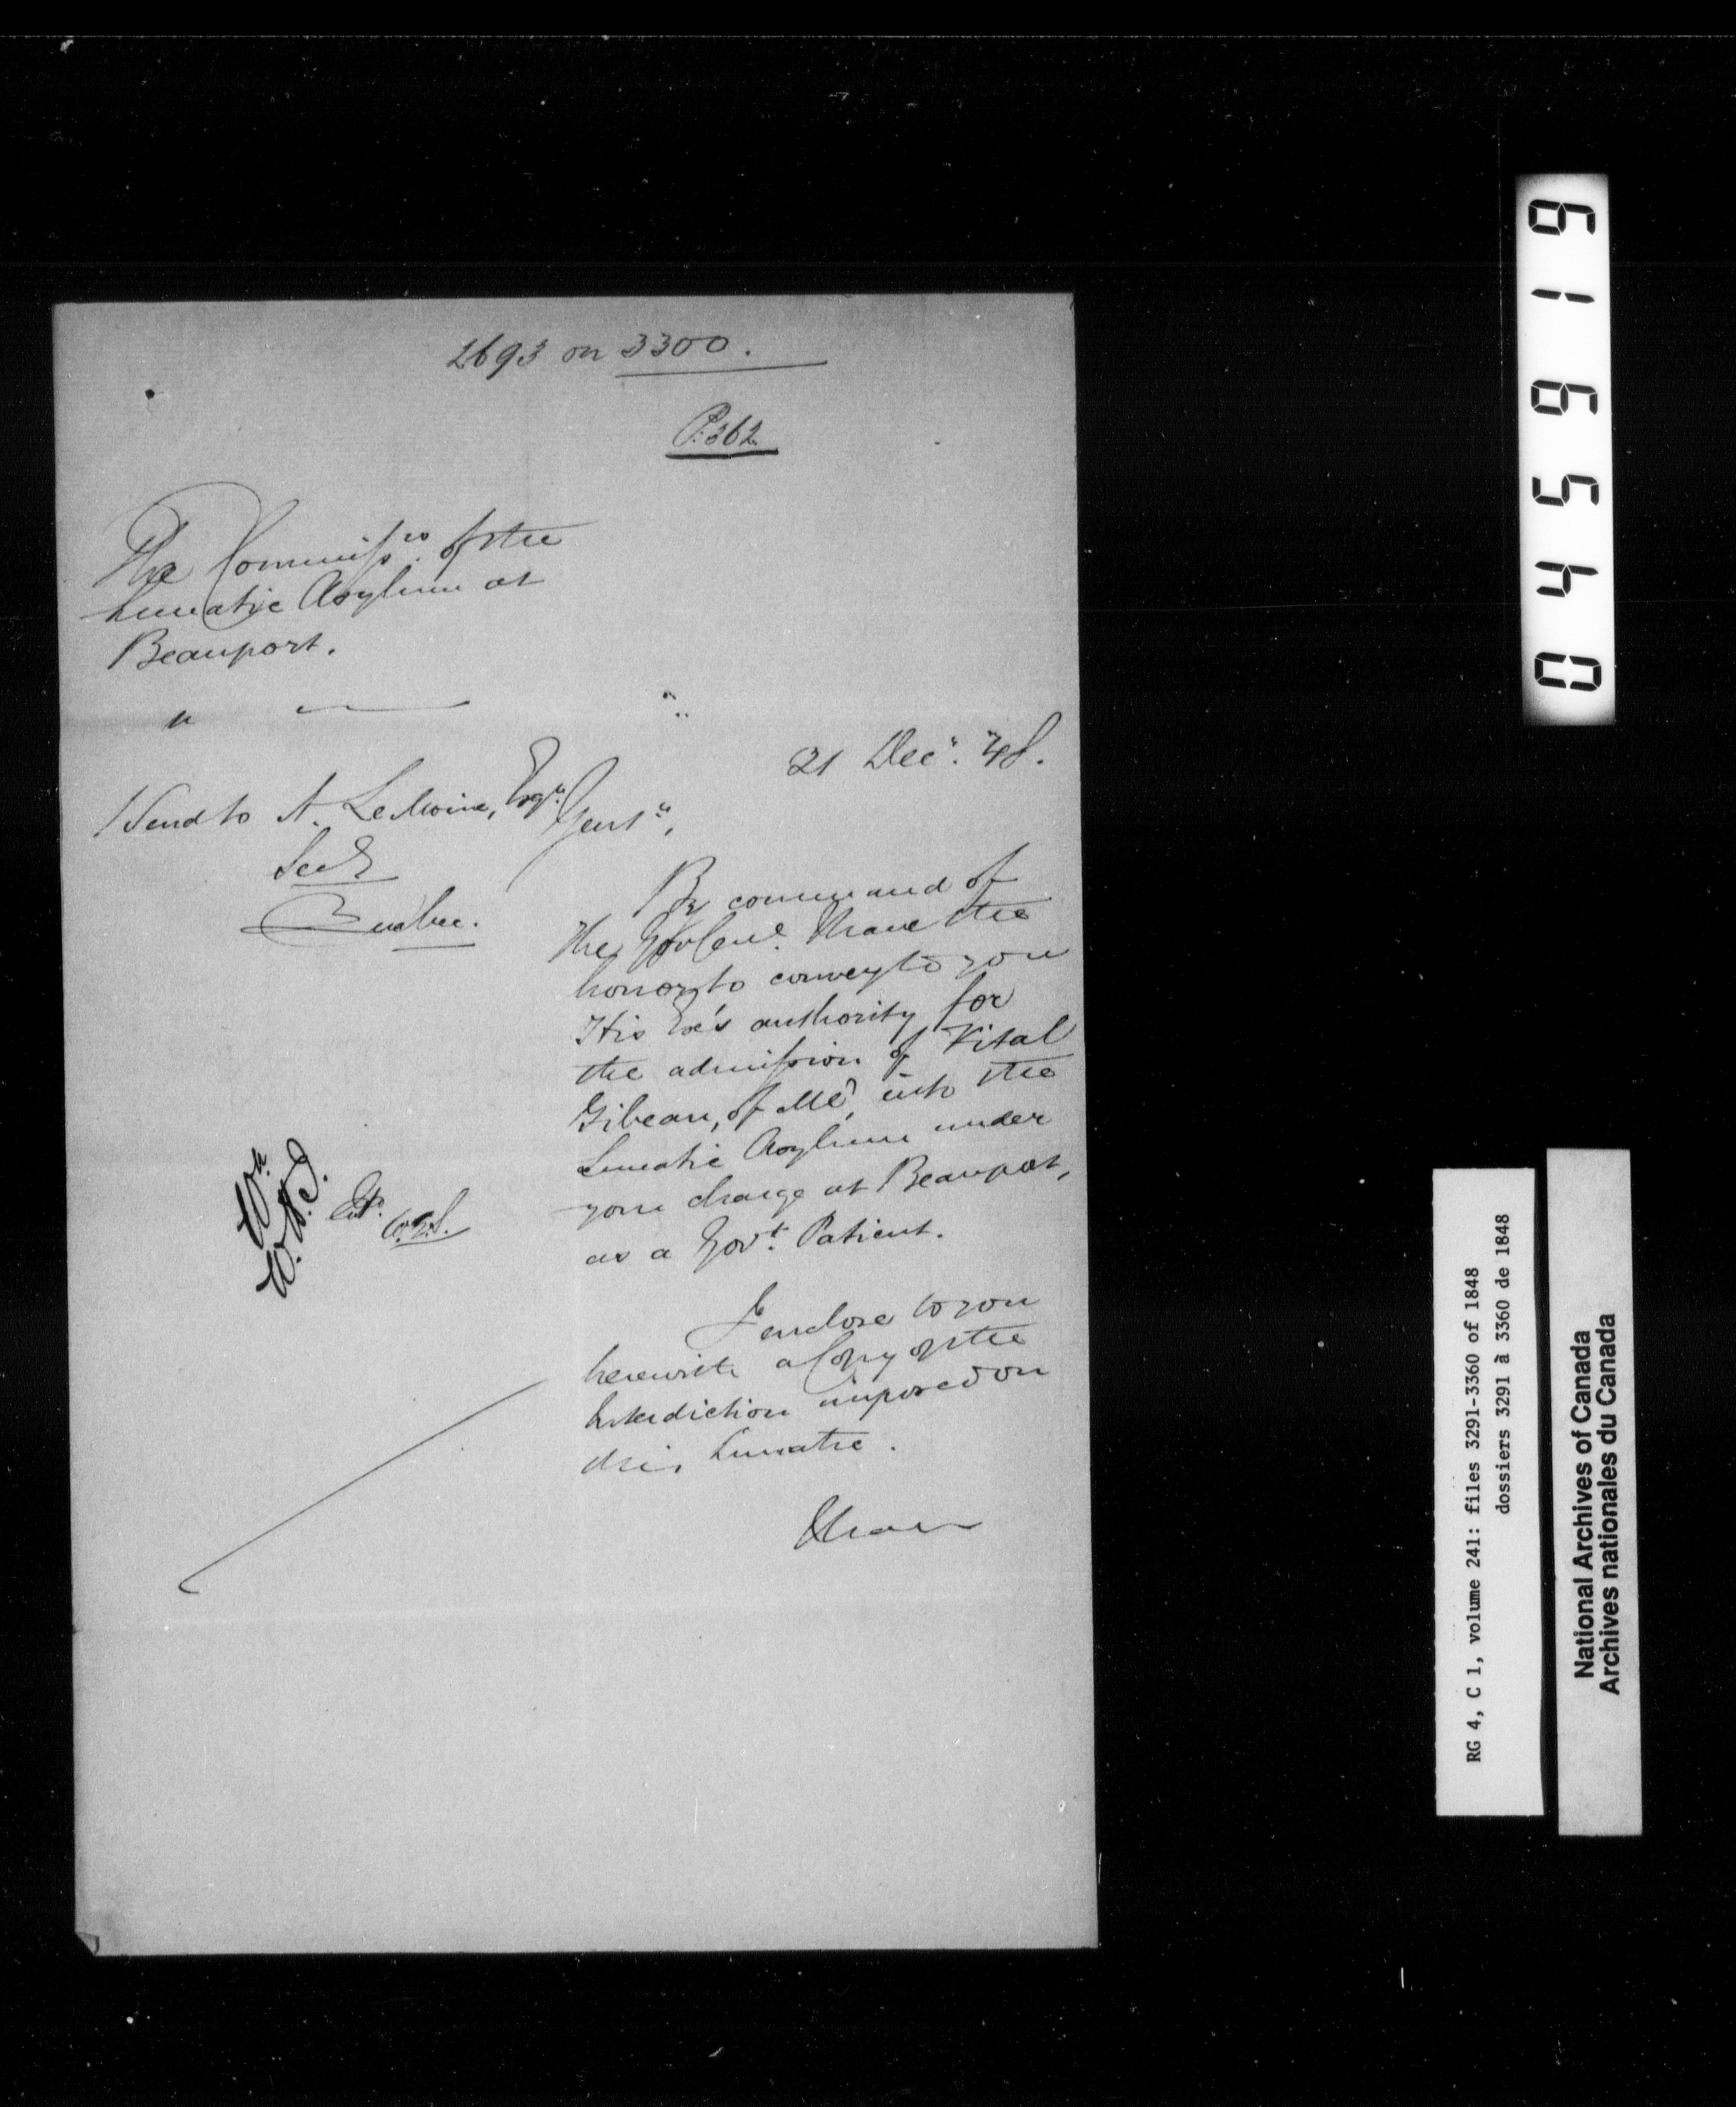 2693 on 3300.
P. 362
The Commissrs. of the
Lunatic Asylum at
Beauport.
21 Decr. 48.
Send to A. LeMoine, Esqr.
Gentn.,
Secy
Quebec.
By command of
the Gov Genl. I have the
honor to convey to you
His Exc's authority for
the admission of Vital
Gibeau, of Ml, into the
Lunatic Asylum under
your charge at Beauport,
as a Govt. Patient.
I enclose to you
herewith a Copy of the
Interdiction imposed on
this Lunatic.
I have
045619
RG 4, C 1, volume 241: files 3291-3360 of 1848
dossiers 3291 à 3360 de 1848
National Archives of Canada
Archives nationales du Canada